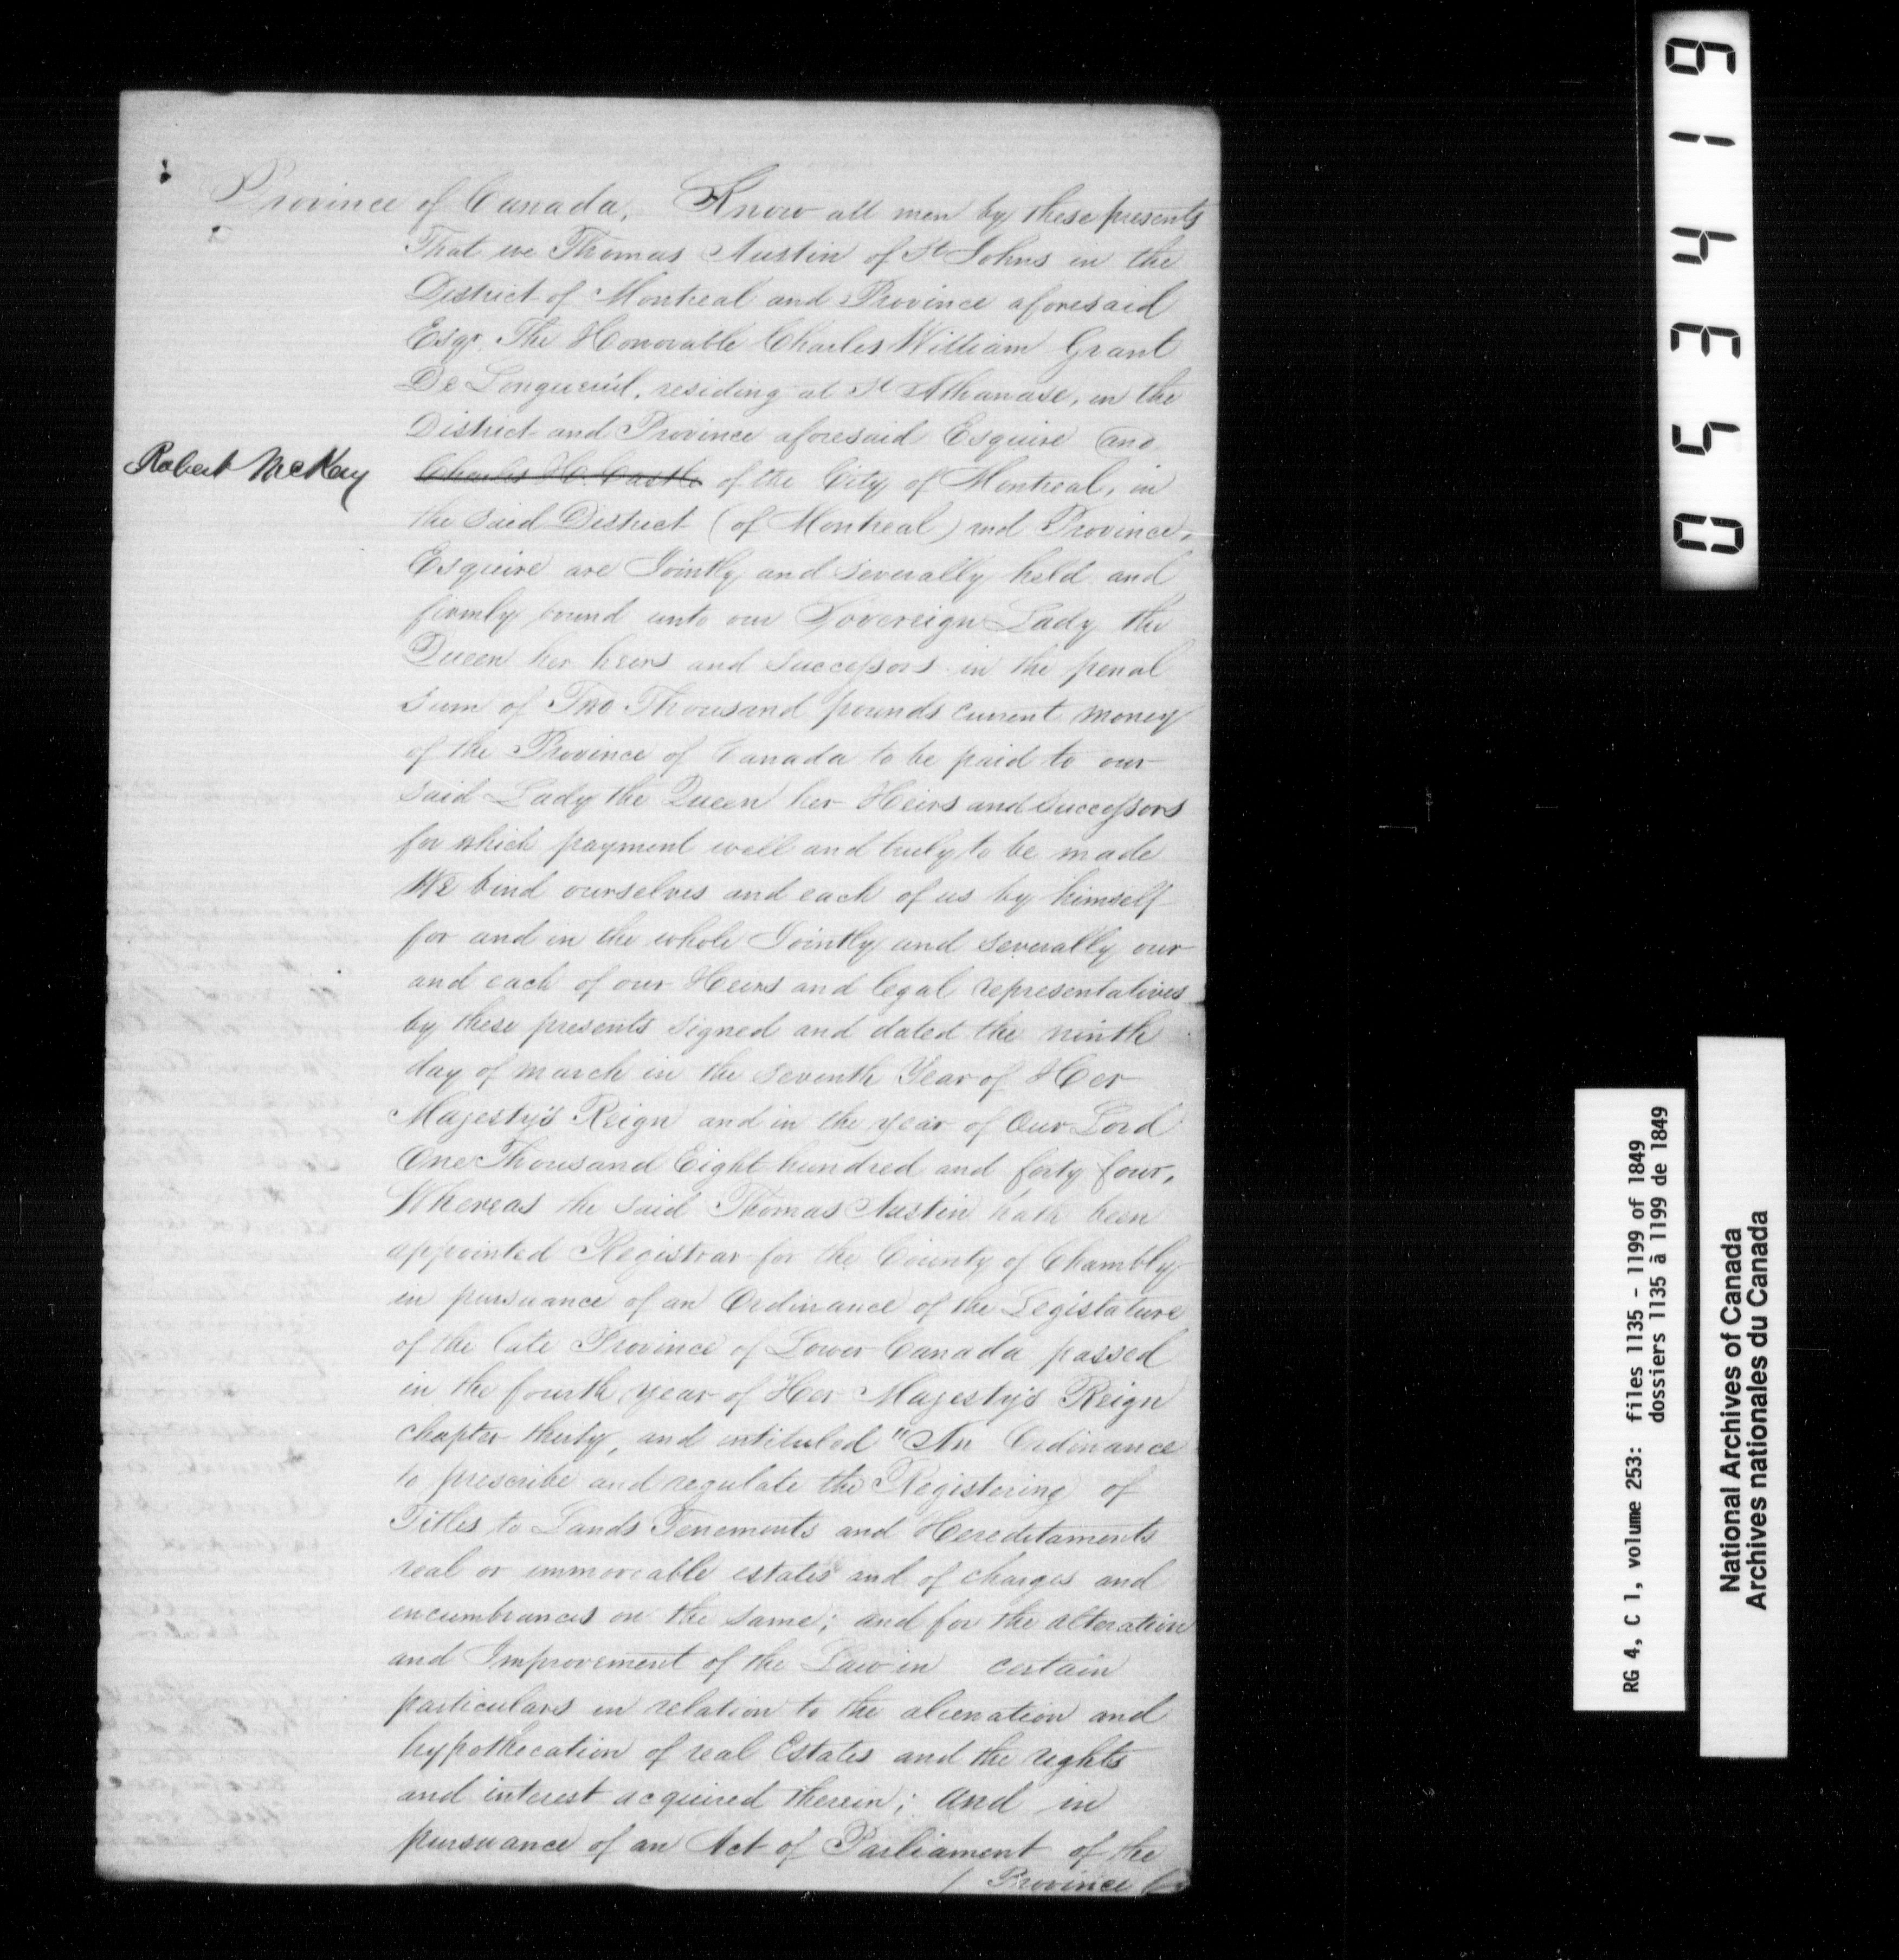 Province of Canada, Know all men by these presents
That we Thomas Austin of St Johns in the
District of Montreal and Province aforesaid
Esqr. The Honorable Charles William Grant
De Longueuil, residing at St Athanase, in the
District and Province aforesaid Esquire and
Robert McKay
Charles H. Castle of the City of Montreal, in
the said District (of Montreal) and Province,
Esquire are Jointly and severally held and
firmly bound unto our Sovereign Lady the
Queen her heirs and successors in the penal
sum of Two Thousand pounds current money
of the Province of Canada to be paid to our
said Lady the Queen her Heirs and successors
for which payment well and truly to be made
We bind ourselves and each of us by himself
for and in the whole Jointly and severally our
and each of our Heirs and legal representatives
by these presents signed and dated the ninth
day of march in the seventh Year of Her
Majesty's Reign and in the year of Our Lord
One Thousand Eight hundred and forty four,
Whereas the said Thomas Austin hath been
appointed Registrar for the County of Chambly
in pursuance of an Ordinance of the Legislature
of the late Province of Lower Canada passed
in the fourth year of Her Majesty's Reign
chapter thirty, and intituled "An Ordinance
to prescribe and regulate the Registering of
Titles to Lands Tenements and Hereditaments
real or immoveable estates and of charges and
encumbrances on the same; and for the alteration
and Improvement of the Law in certain
particulars in relation to the alienation and
hypothecation of real Estates and the rights
and interest acquired therein; and in
pursuance of an Act of Parliament of the
/ Province
053419
RG 4, C 1, volume 253: files 1135 - 1199 of 1849
dossiers 1135 à 1199 de 1849
National Archives of Canada
Archives nationales du Canada